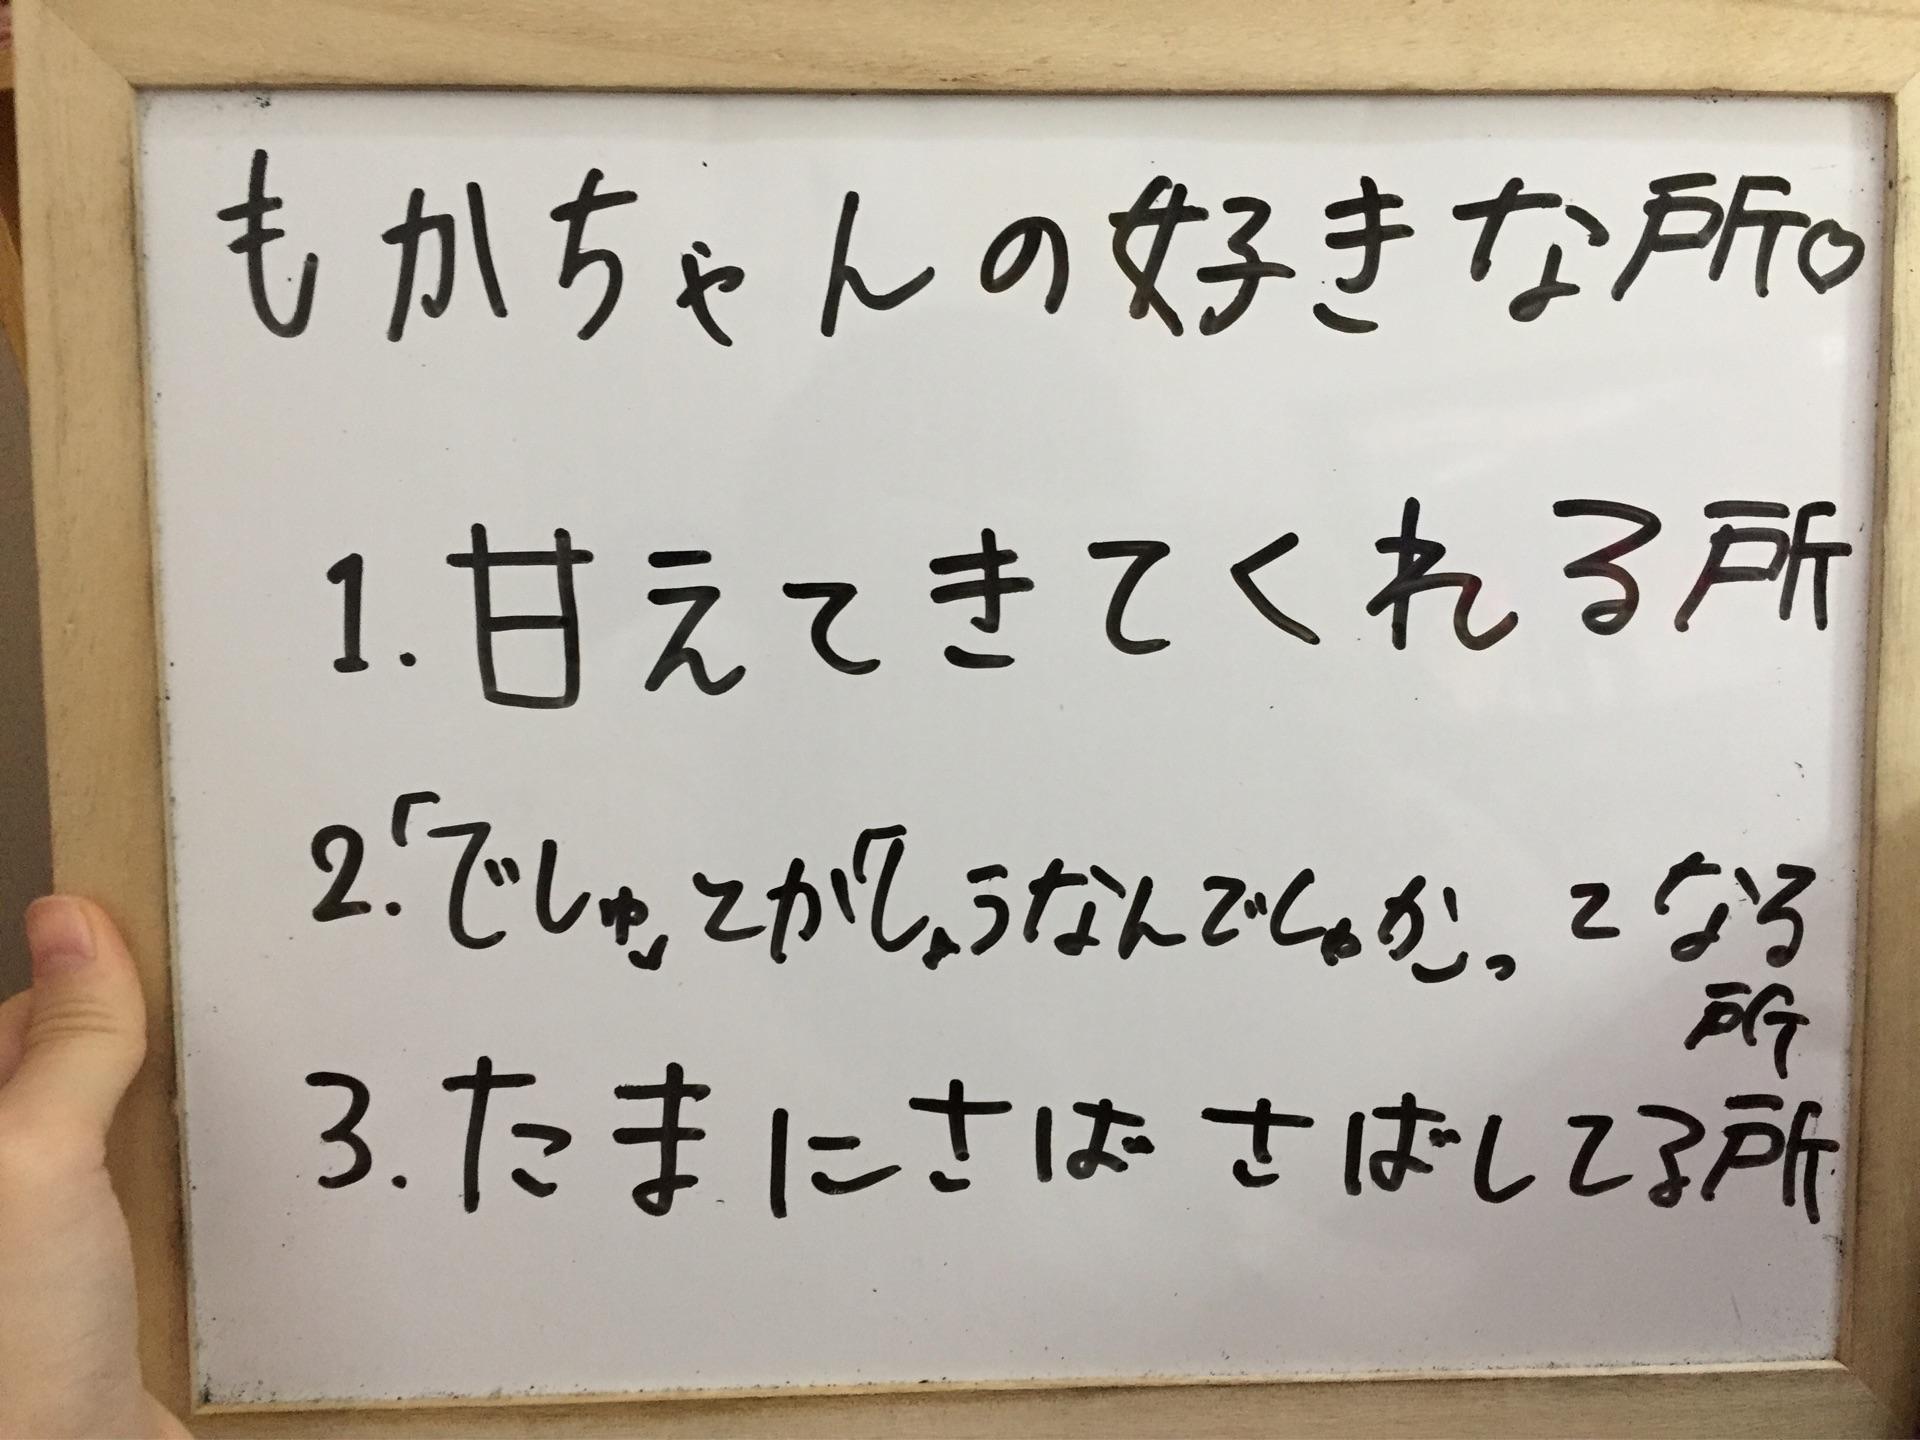 もかちゃんの好きな所♡
1.甘えてきてくれる所
2.「でしゅ」とか「しょうなんでしゅか」っとなる
所
3.たまにさばさばしてる所